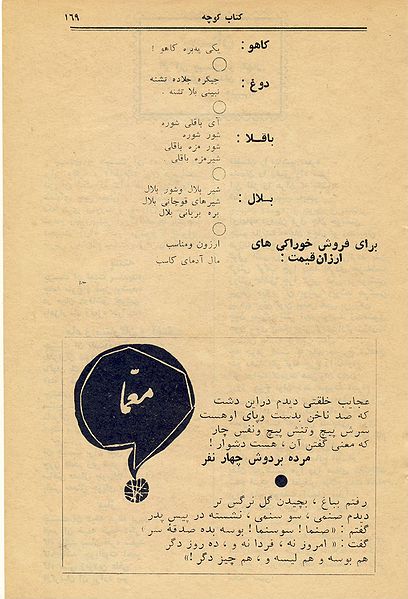 کتاب کوچه ۱۶۹
کاهو : یکی یه‌بره کاهو !
دوغ : جیگره جلاده تشنه
نبینی بلا تشنه .
باقلا : آی باقلی شوره
شور شوره
شور مزه باقلی
شیرمزه باقلی .
بلال : شیر بلال وشور بلال
شیرهای قوچانی بلال
بره بریانی بلال
برای فروش خوراکی های ارزان‌قیمت : ارزون ومناسب
مال آدمای کاسب
معمّا
عجایب خلقتی دیدم دراین دشت
که صد ناخن بدست وپای اوهست
سرش پیچ وتنش پیچ ونفس چار
که معنی گفتن آن ، هست دشوار !
مرده بردوش چهار نفر
رفتم بباغ ، بچیدن گل نرگس تر
دیدم صنمی ، سو سنمی ، نشسته در پیس پدر
گفتم : «صنما ! سوسنما ! بوسه بده صدقهٔ سر ›
گفت : « امروز نه ، فردا نه و ، ده روز دگر
هم بوسه و هم لیسه و ، هم چیز دگر !»